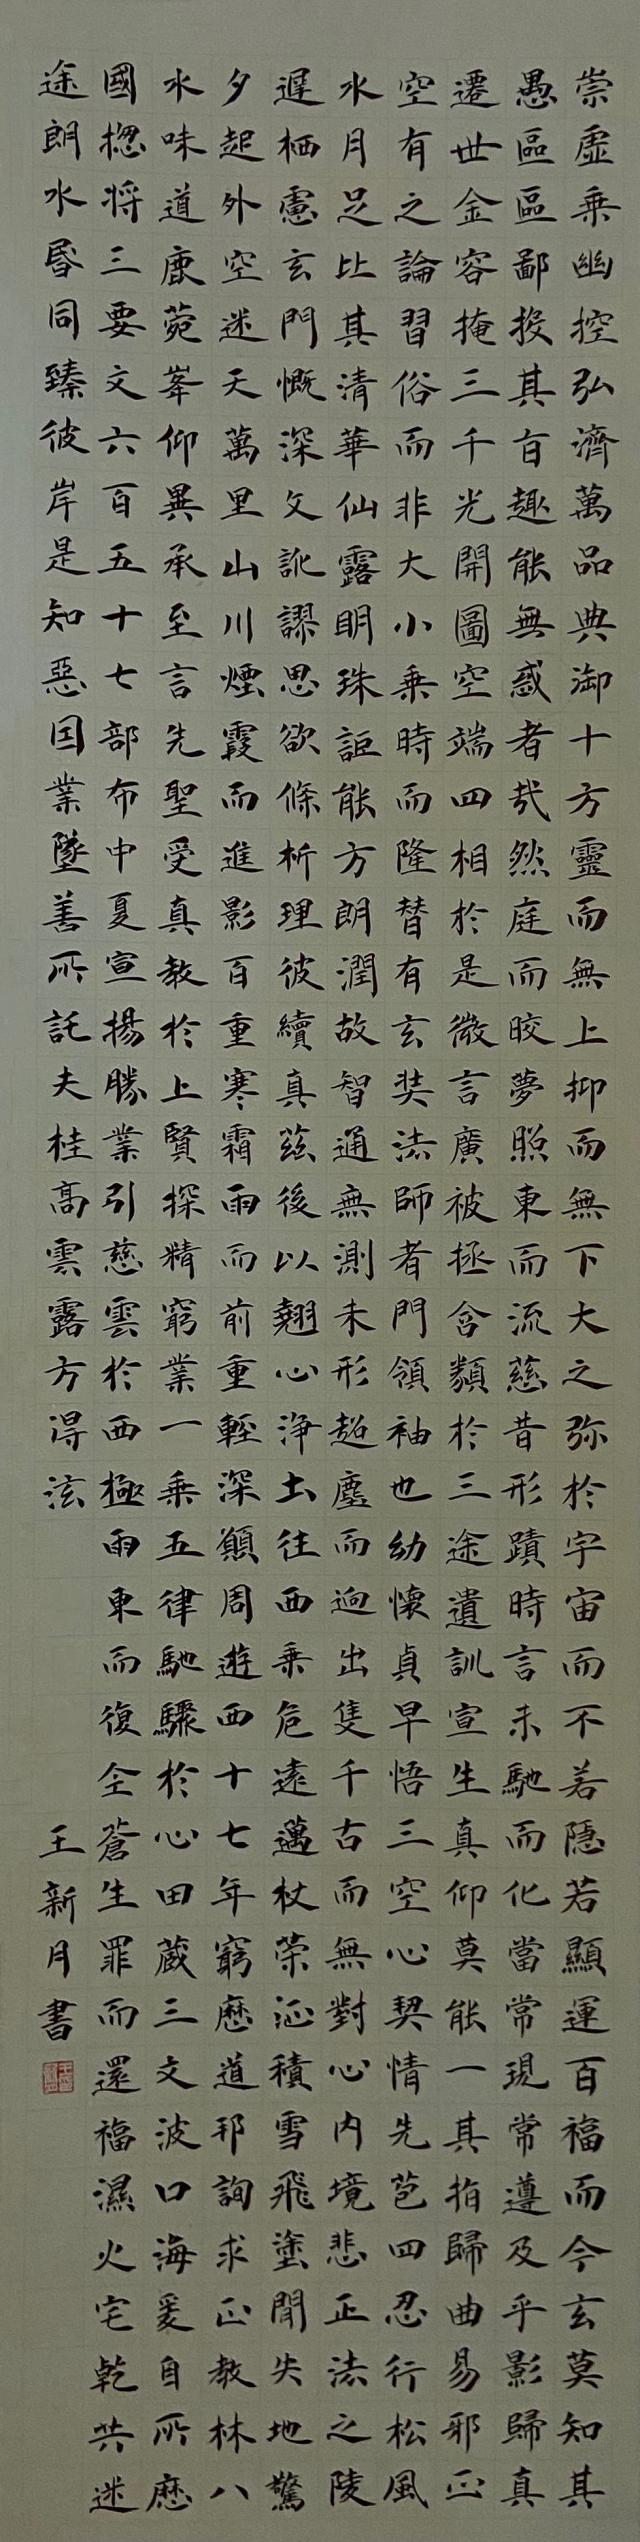 崇虛乘幽控弘濟萬品典御十方靈而無上抑而無下大之弥於宇宙而不若隱若顯運百福而今玄莫知其
愚區區鄙投其百趣能無惑者㢤然庭而皎夢照東而流慈昔形蹟時言未馳而化當常現常遵及乎影歸真
遷世金容掩三千光開圖空端四相於是微言廣被拯含類於三途遺訓宣生真仰莫能一其指歸曲易邪正
空有之論習俗而非大小乘時而隆替有玄奘法師者門領袖也幼懷貞早悟三空心契情先苞四忍行松風
水月足比其清華仙露明珠詎能方朗潤故智通無測未形超塵而迥出隻千古而無對心內境悲正法之陵
遲栖慮玄門慨深文訛謬思欲條析理彼續真茲後以翹心浄土往西乘危遠邁杖荣征積雪飛塗閒失地驚
夕起外空迷天萬里山川煙霞而進影百重寒霜雨而前重輕深願周遊西十七年窮歷道邦詢求正教林八
水味道鹿菀峯仰異承至言先聖受真教於上賢探精窮業一乘五律馳驟於心田藏三文波口海爰自所歷
國揔将三要文六百五十七部布中夏宣揚勝業引慈雲於西極雨東而復全蒼生罪而還福濕火宅乾共迷
途朗水昏同臻彼岸是知惡因業墜善所託夫桂高雲露方得泫
王新月書